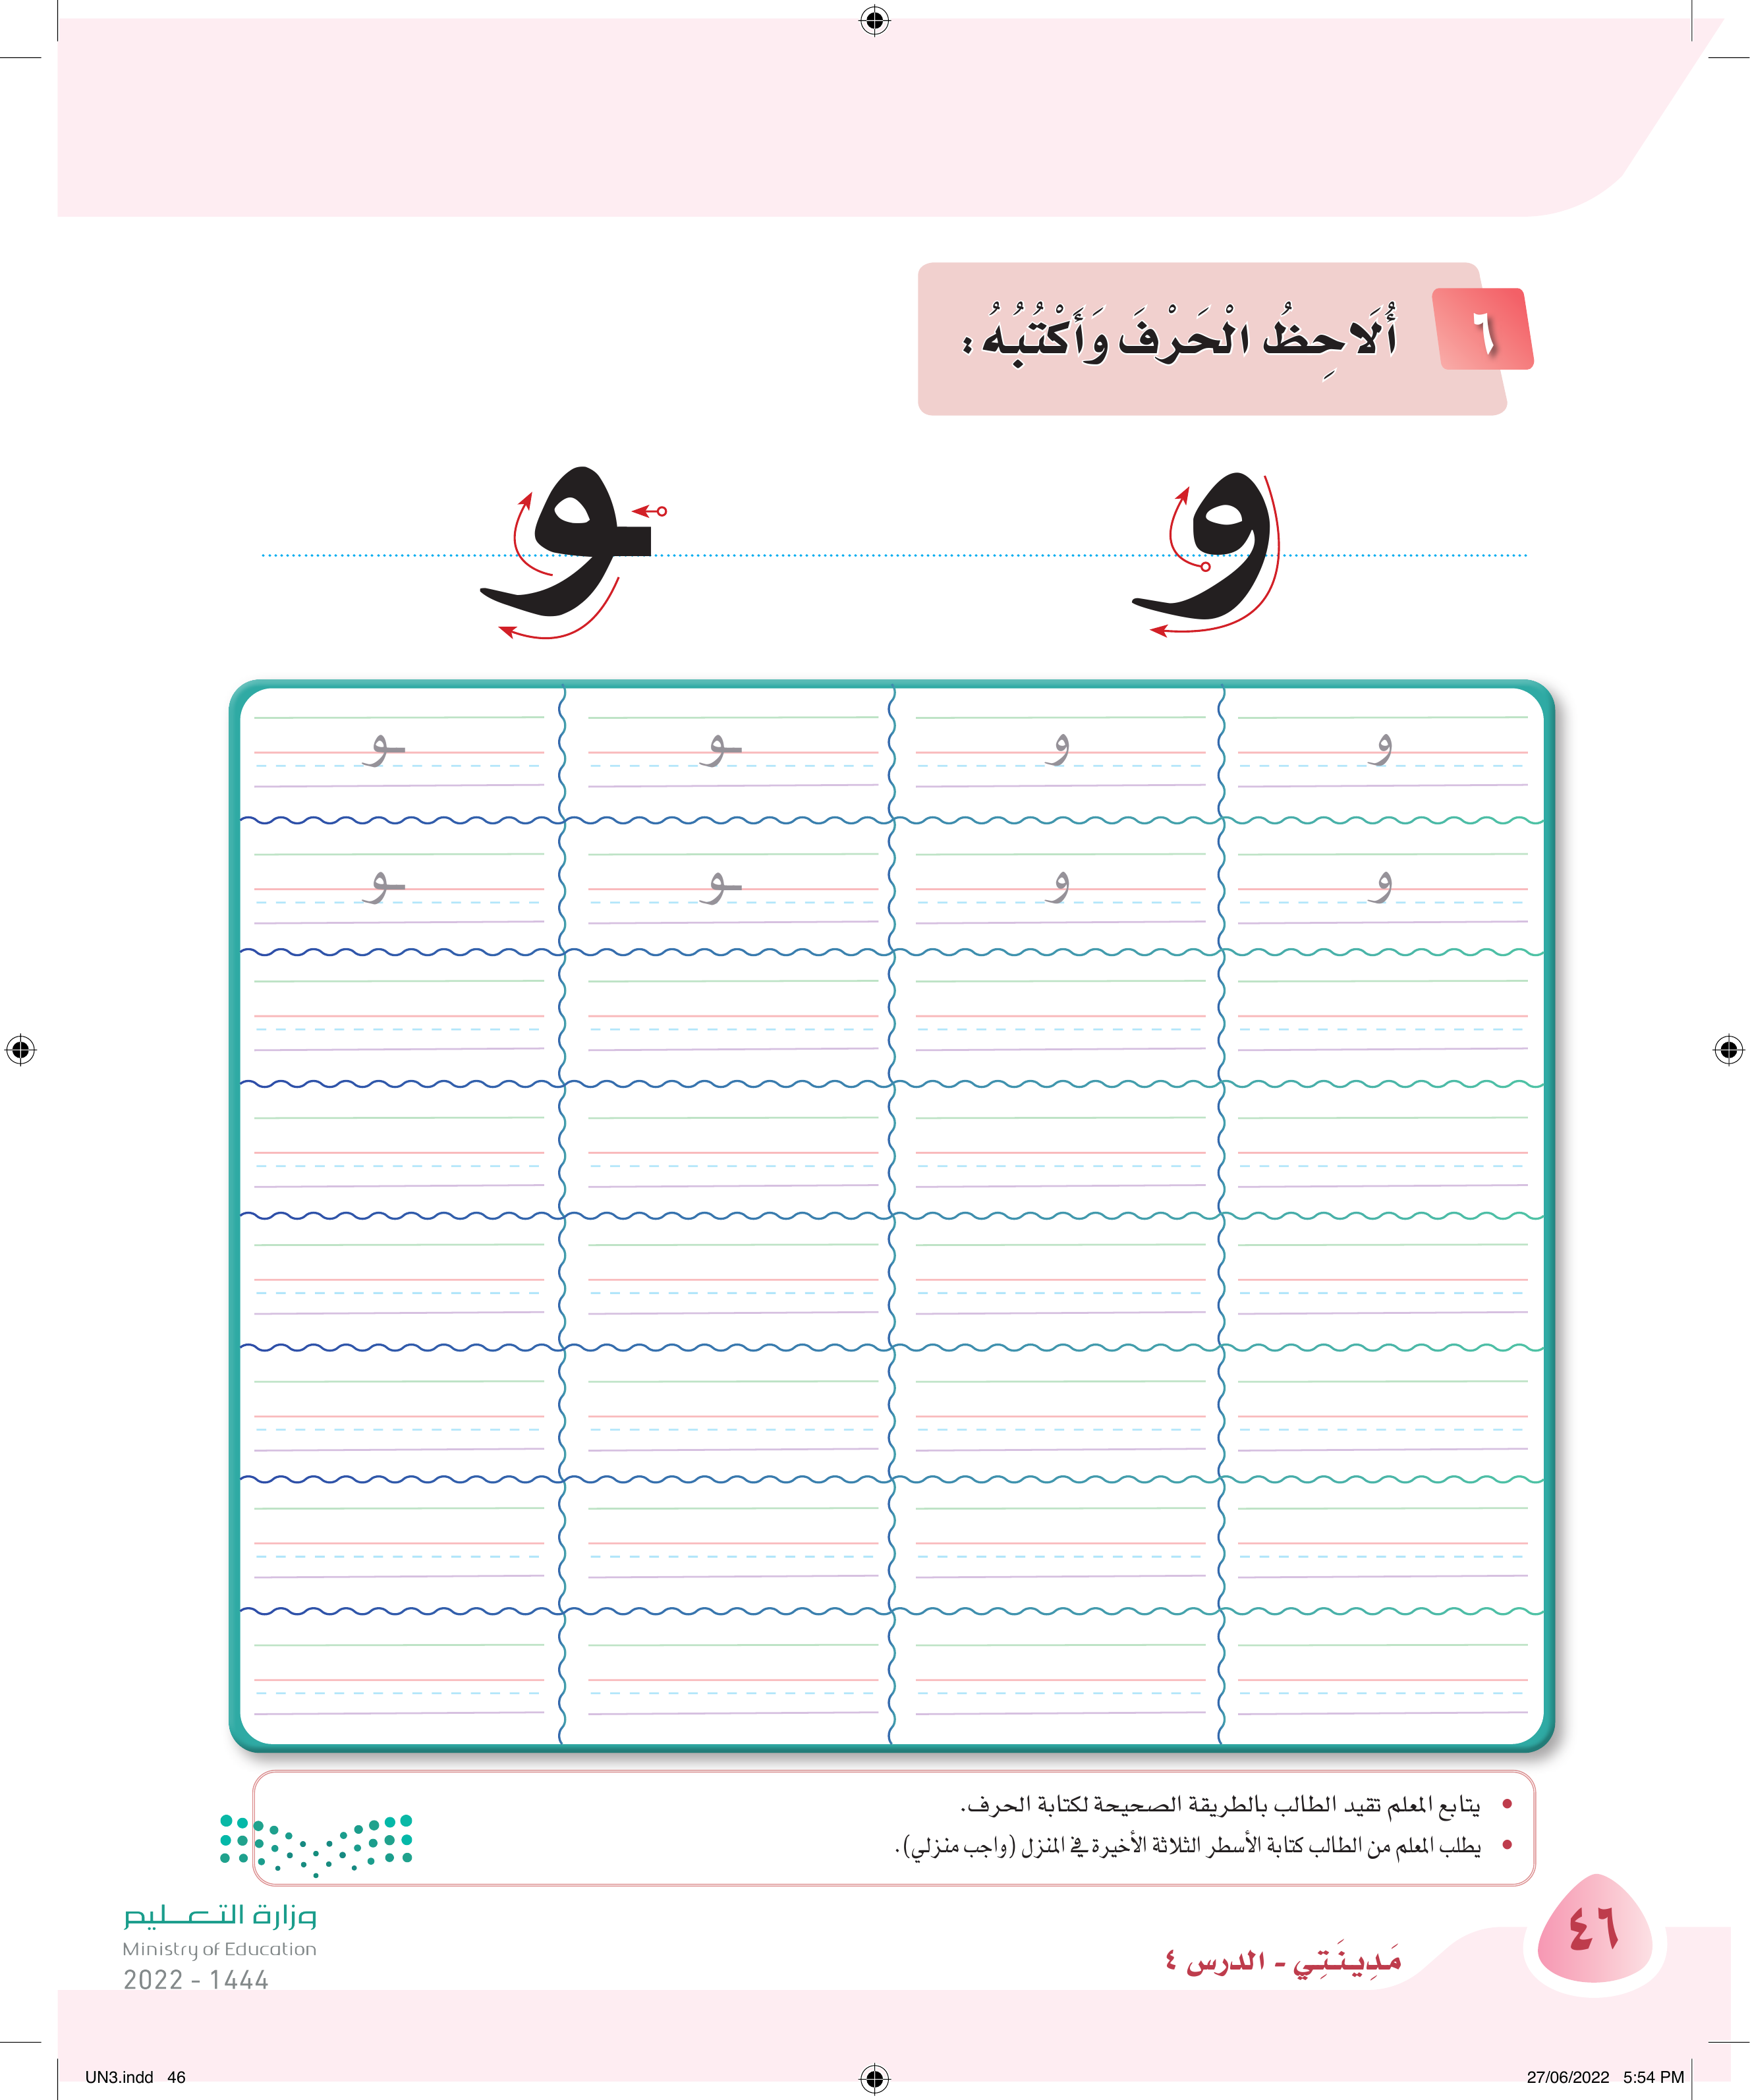 ٦
أُلَاحِظُ الْحَرْفَ وَأَكْتُبُهُ :
و ـو
و و ـو ـو
و و ـو ـو
• يتابع المعلم تقيد الطالب بالطريقة الصحيحة لكتابة الحرف.
• يطلب المعلم من الطالب كتابة الأسطر الثلاثة الأخيرة في المنزل (واجب منزلي).
وزارة التـعـلـيم
Ministry of Education
2022 - 1444
٤٦
مَدِينَتِي - الدرس ٤
UN3.indd 46
27/06/2022 5:54 PM